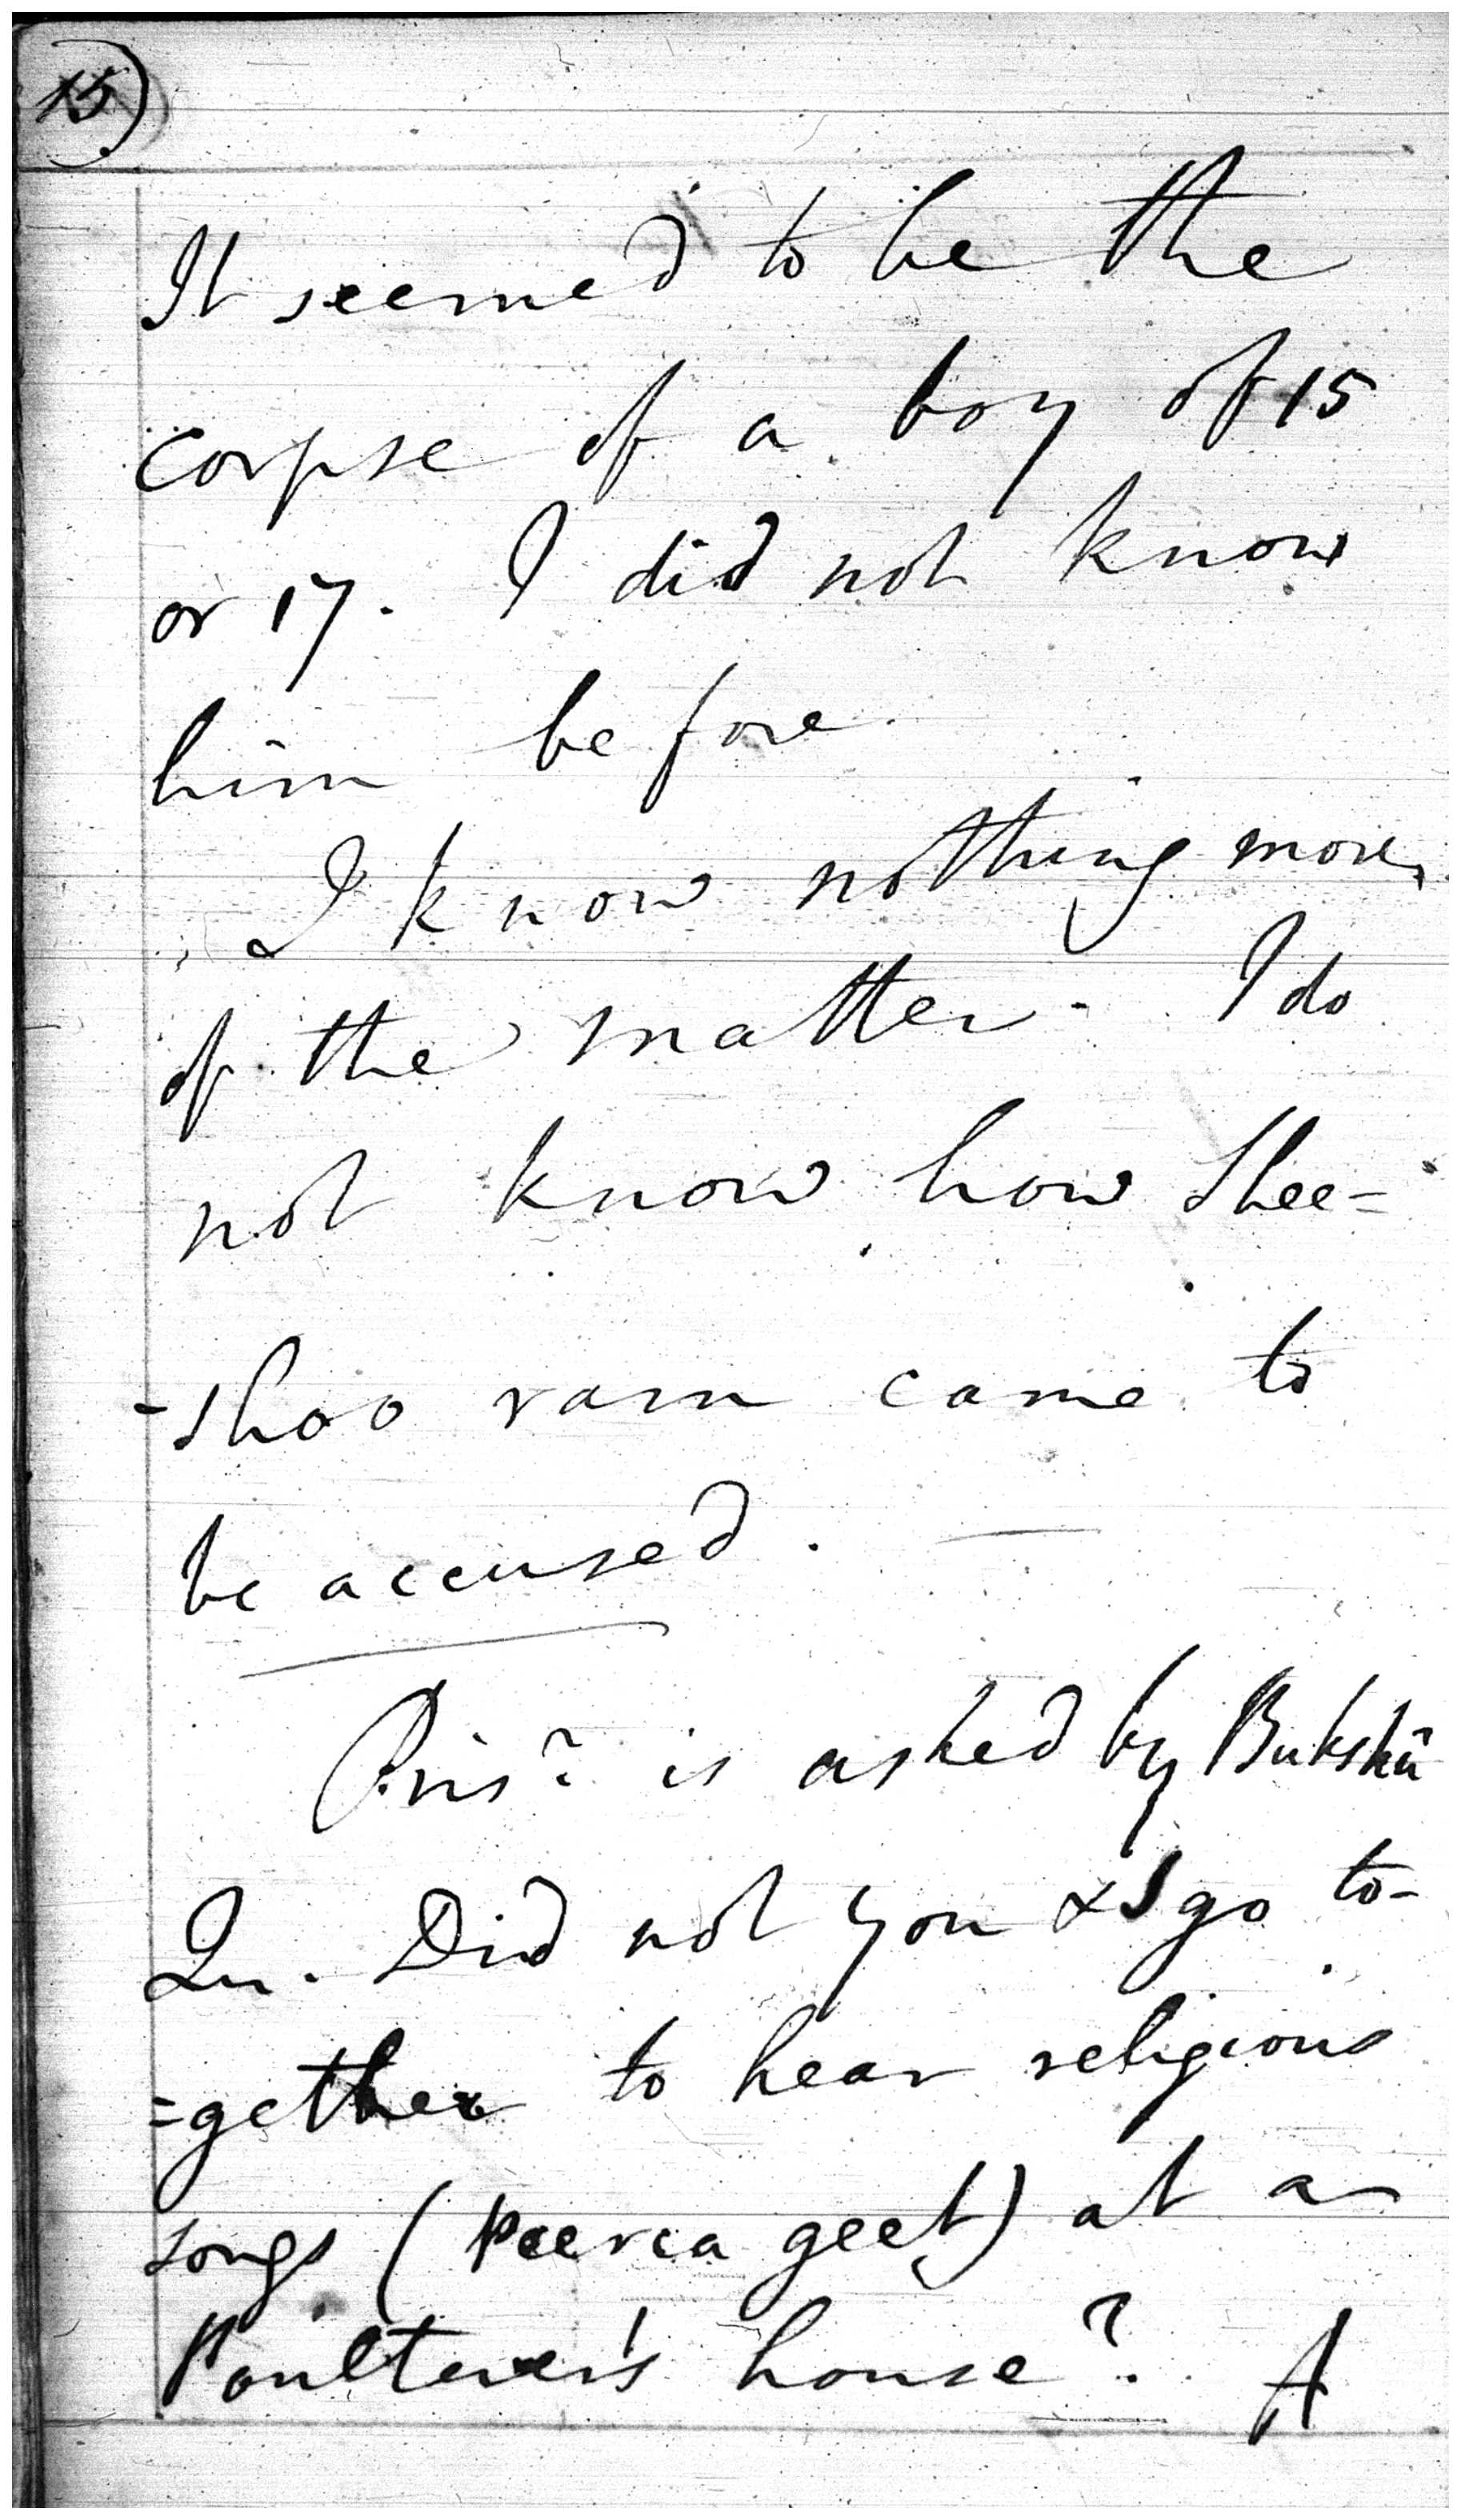 15)
It seemed to be the
corpse of a boy of 15
or 17. I did not know
him before.
I know nothing more,
of the matter. I do
not know how Shee=
-shoo ram came to
be accused. —
Pris? is asked by Bukshū
Qu. Did not you & I go to-
=gether to hear religious
songs (peerca geet) at a
Poulterer's house? A